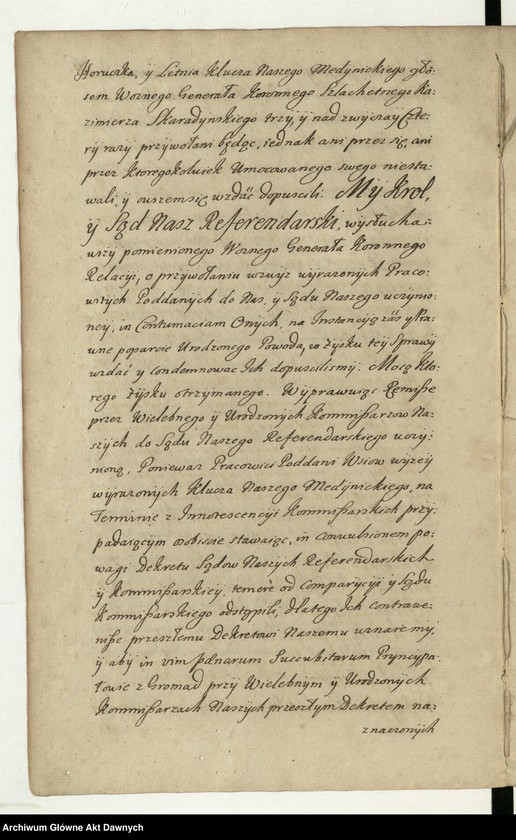 Horucka, y Letnia Klucza Naszego Medynickiego gło-
sem Woznego Generała Koronnego Szlachetnego Ka-
zimierza Skaradynskiego trzy, y nad zwyczay Czte-
ry razy przywołani będąc, iednak ani przez się, ani
przez ktoregokolwiek Umocowanego swego niesta-
wali, y owszem się wzdać dopuscili. My Krol,
y Sąd Nasz Referendarski, wysłucha-
wszy pomienionego Woznego Generała Koronnego
Relacyi, o przywołaniu wzwyż wyrażonych Praco-
witych Poddanych do Nas, y Sądu Naszego uczynio-
ney, in Contumaciam Onych, na Instancyą zaś y Pra-
wne poparcie Urodzonego Powoda, w zysku tey Sprawy
wzdać y Condemnowac Ich dopuscilismy. Mocą Kto-
rego zysku otrzymanego. Wyprawuiąc Remisse
przez Wielebnego y Urodzonych Kommissarzow Na-
szych do Sądu Naszego Referendarskiego uczy-
nioną, Poniewaz Pracowici Poddani Wsiow wyżey
wyrażonych Klucza Naszego Medynickiego, na
Terminie z Innotescencyi Kommissarskich przy-
padaiącym osobiscie stawaiąc, in convulsionem po-
wagi Dekretu Sądow Naszych Referendarskich
y Kommissarskiey, temerè od Comparycyi y Sądu
Kommissarskiego odstąpili, dlatego Ich contrave-
nisse przeszłemu Dekretowi Naszemu uznaiemy,
y aby in vim pænarum Succubitarum Pryncypa-
łowie z Gromad przy Wielebnym y Urodzonych
Kommissarzach Naszych przeszłym Dekretem na-
znaczonych
Archiwum Główne Akt Dawnych